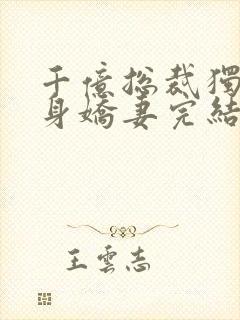 千億総裁獨
身嬌妻完結
王雲志